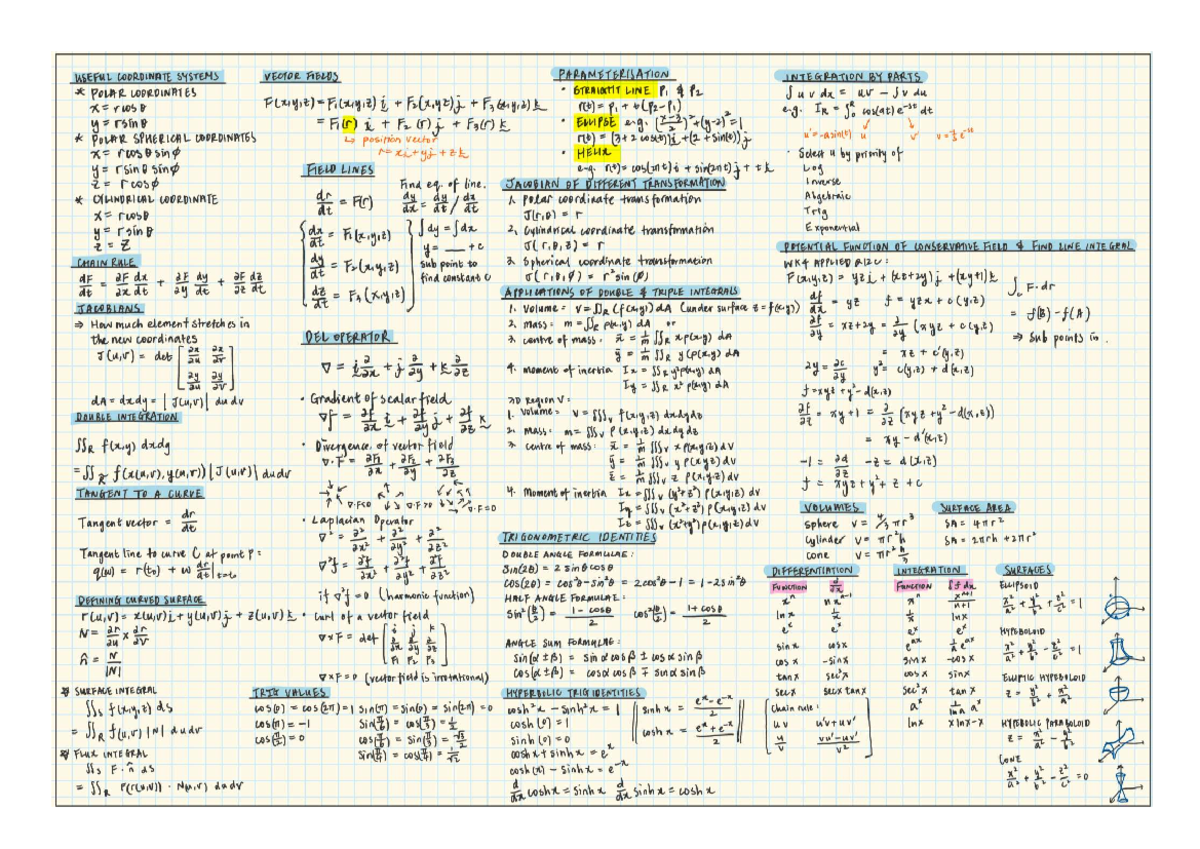 USEFUL COORDINATE SYSTEMS
* POLAR COORDINATES
x = r cos θ
y = r sin θ
* POLAR SPHERICAL COORDINATES
x = r cos θ sin ϕ
y = r sin θ sin ϕ
z = r cos ϕ
* CYLINDRICAL COORDINATE
x = r cos θ
y = r sin θ
z = z
CHAIN RULE
dF/dt = ∂F/∂x dx/dt + ∂F/∂y dy/dt + ∂F/∂z dz/dt
JACOBIANS
⇒ How much element stretches in
the new coordinates
J(u,v) = det [∂x/∂u ∂x/∂v
∂y/∂u ∂y/∂v]
dA = dxdy = |J(u,v)| du dv
DOUBLE INTEGRATION
∬R f(x,y) dxdy
= ∬R f(x(u,v), y(u,v)) |J(u,v)| du dv
TANGENT TO A CURVE
Tangent vector = dr/dt
Tangent line to curve C at point P:
q(w) = r(t₀) + w dr/dt|t=t₀
DEFINING CURVED SURFACE
r(u,v) = x(u,v)i + y(u,v)j + z(u,v)k
N = ∂r/∂u × ∂r/∂v
n̂ = N/|N|
SURFACE INTEGRAL
∬s f(x,y,z) ds
= ∬R f(u,v) |N| du dv
FLUX INTEGRAL
∬s F · n̂ ds
= ∬R F(r(u,v)) · N(u,v) du dv
VECTOR FIELDS
F(x,y,z) = F₁(x,y,z) i + F₂(x,y,z) j + F₃(x,y,z) k
= F₁(r) i + F₂(r) j + F₃(r) k
↳ position vector
r = xi + yj + zk
FIELD LINES
dr/dt = F(r)
dx/dt = F₁(x,y,z)
dy/dt = F₂(x,y,z)
dz/dt = F₃(x,y,z)
Find eq. of line.
dy/dx = dy/dt / dx/dt
∫dy = ∫dx
y = ___ + c
sub point to
find constant c
DEL OPERATOR
∇ = i ∂/∂x + j ∂/∂y + k ∂/∂z
• Gradient of scalar field
∇f = ∂f/∂x i + ∂f/∂y j + ∂f/∂z k
• Divergence of vector field
∇·F = ∂F₁/∂x + ∂F₂/∂y + ∂F₃/∂z
∇·F<0 ∇·F>0 ∇·F=0
• Laplacian Operator
∇² = ∂²/∂x² + ∂²/∂y² + ∂²/∂z²
∇²f = ∂²f/∂x² + ∂²f/∂y² + ∂²f/∂z²
if ∇²f = 0 (harmonic function)
• Curl of a vector field
∇×F = det [i j k
∂/∂x ∂/∂y ∂/∂z
F₁ F₂ F₃]
∇×F = 0 (vector field is irrotational)
TRIG VALUES
cos(0) = cos(2π) = 1 sin(π) = sin(0) = sin(2π) = 0
cos(π) = -1 sin(π/6) = cos(π/3) = 1/2
cos(π/2) = 0 cos(π/6) = sin(π/3) = √3/2
sin(π/4) = cos(π/4) = 1/√2
PARAMETERISATION
• STRAIGHT LINE P₁ & P₂
r(t) = P₁ + t(P₂-P₁)
• ELLIPSE e.g. (x-3/2)² + (y-2)² = 1
r(t) = (3+2cos(t))i + (2+sin(t))j
• HELIX
e.g. r(t) = cos(2πt)i + sin(2πt)j + tk
JACOBIAN OF DIFFERENT TRANSFORMATION
1. Polar coordinate transformation
J(r,θ) = r
2. Cylindrical coordinate transformation
J(r,θ,z) = r
3. Spherical coordinate transformation
J(r,θ,ϕ) = r² sin(ϕ)
APPLICATIONS OF DOUBLE & TRIPLE INTEGRALS
1. Volume: V = ∬R (f(x,y)) dA (under surface z = f(x,y))
2. Mass: m = ∬R ρ(x,y) dA
3. centre of mass: x̄ = 1/m ∬R xρ(x,y) dA
ȳ = 1/m ∬R yρ(x,y) dA
4. moment of inertia Ix = ∬R y²ρ(x,y) dA
Iy = ∬R x²ρ(x,y) dA
3D REGION V:
1. Volume: V = ∭v f(x,y,z) dxdydz
2. Mass: m = ∭v ρ(x,y,z) dxdydz
3. centre of mass: x̄ = 1/m ∭v xρ(x,y,z) dV
ȳ = 1/m ∭v yρ(xyz) dV
z̄ = 1/m ∭v zρ(x,y,z) dV
4. Moment of inertia Ix = ∭v (y²+z²) ρ(x,y,z) dV
Iy = ∭v (x²+z²) ρ(x,y,z) dV
Iz = ∭v (x²+y²) ρ(x,y,z) dV
TRIGONOMETRIC IDENTITIES
DOUBLE ANGLE FORMULAE:
sin(2θ) = 2 sin θ cos θ
cos(2θ) = cos²θ - sin²θ = 2cos²θ - 1 = 1 - 2sin²θ
HALF ANGLE FORMULAE:
sin²(θ/2) = 1-cosθ/2 cos²(θ/2) = 1+cosθ/2
ANGLE SUM FORMULAE:
sin(α±β) = sin α cos β ± cos α sin β
cos(α±β) = cos α cos β ∓ sin α sin β
HYPERBOLIC TRIG IDENTITIES
cosh²x - sinh²x = 1
cosh(0) = 1
sinh(0) = 0
cosh x + sinh x = eˣ
cosh(x) - sinh x = e⁻ˣ
d/dx cosh x = sinh x d/dx sinh x = cosh x
sinh x = eˣ-e⁻ˣ/2
cosh x = eˣ+e⁻ˣ/2
INTEGRATION BY PARTS
∫u v dx = uv - ∫v du
• Select u by priority of
Log
Inverse
Algebraic
Trig
Exponential
POTENTIAL FUNCTION OF CONSERVATIVE FIELD & FIND LINE INTEGRAL
WK4 APPLIED
F(x,y,z) = yz i + (xz+2y) j + (xy+1) k
df/dx = yz f = yzx + c(y,z)
∂f/∂y = xz+2y = ∂/∂y (xyz + c(y,z))
= xz + c'(y,z)
2y = ∂c/∂y y² = c(y,z) + d(x,z)
f = xyz + y² - d(x,z)
∂f/∂z = xy+1 = ∂/∂z (xyz+y²-d(x,z))
= xy - d'(x,z)
-1 = ∂d/∂z -z = d(x,z)
f = xyz + y² + z + c
∫c F·dr
= f(B) - f(A)
⇒ Sub points in.
VOLUMES
sphere V = 4/3 πr³
cylinder V = πr²h
cone V = πr² h/3
SURFACE AREA
SA = 4πr²
SA = 2πrh + 2πr²
DIFFERENTIATION
FUNCTION d/dx
xⁿ nxⁿ⁻¹
ln x 1/x
eˣ eˣ
sin x cos x
cos x -sin x
tan x sec²x
sec x sec x tan x
chain rule:
uv u'v+uv'
u/v vu'-uv'/v²
INTEGRATION
FUNCTION ∫f dx
xⁿ xⁿ⁺¹/n+1
1/x ln x
eˣ eˣ
eᵃˣ 1/a eᵃˣ
sin x -cos x
cos x sin x
sec²x tan x
aˣ 1/ln a aˣ
ln x x ln x - x
SURFACES
ELLIPSOID
x²/a² + y²/b² + z²/c² = 1
HYPEBOLOID
x²/a² + y²/b² - z²/c² = 1
ELLIPTIC HYPEBOLOID
HYPEBOLIC PARABOLOID
CONE
x²/a² + y²/b² - z²/c² = 0